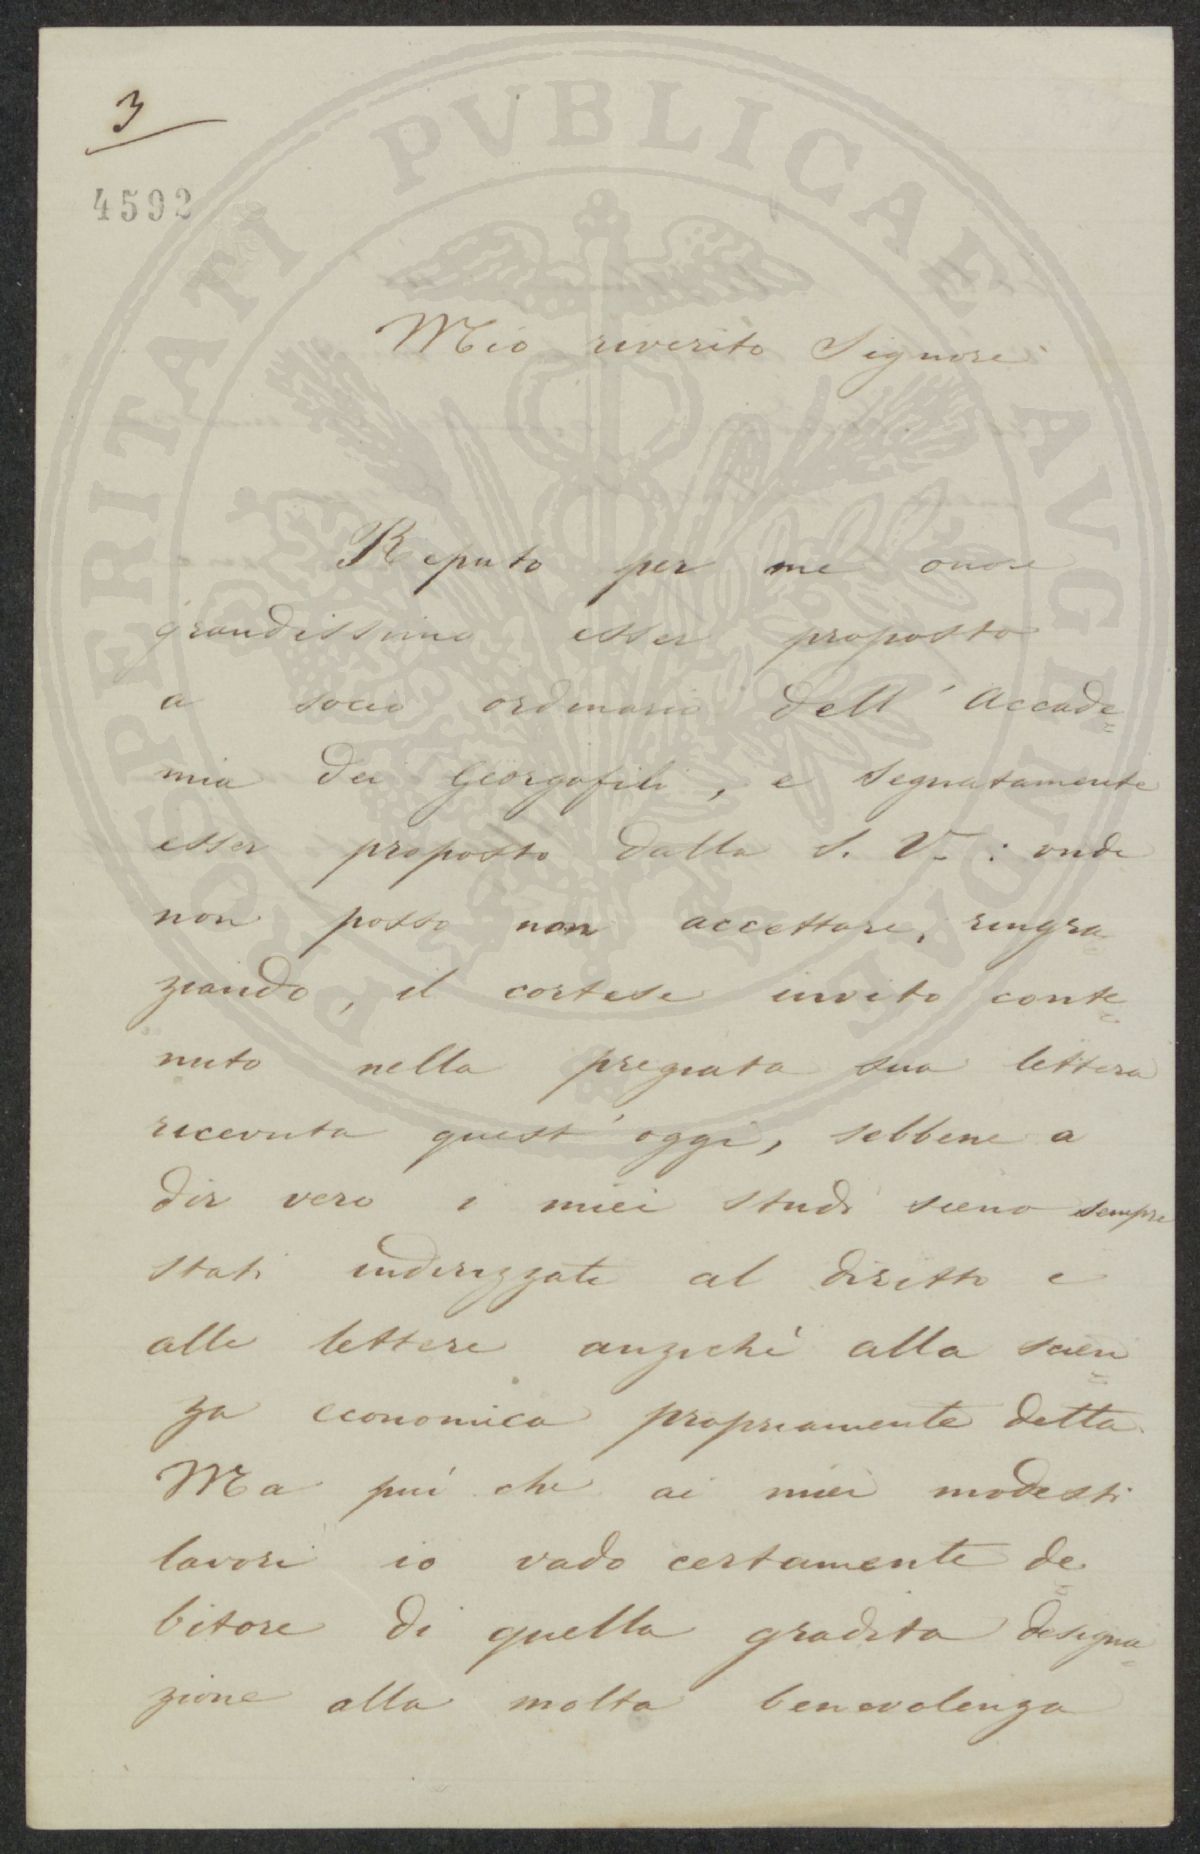 3
4592
PROSPERITATI PVBLICAE AVGENDAE
Mio riverito Signore
Reputo per me onore
grandissimo esser proposto
a socio ordinario dell'Accade=
mia dei Georgofili, e segnatamente
esser proposto dalla S. V. : onde
non posso non accettare, ringra=
ziando, il cortese invito conte=
nuto nella pregiata sua lettera
ricevuta quest'oggi, sebbene a
dir vero i miei studi sieno sempre
stati indirizzati al diritto e
alle lettere anziché alla scien=
za economica propriamente detta.
Ma più che ai miei modesti
lavori io vado certamente de=
bitore di quella gradita designa=
zione alla molta benevolenza